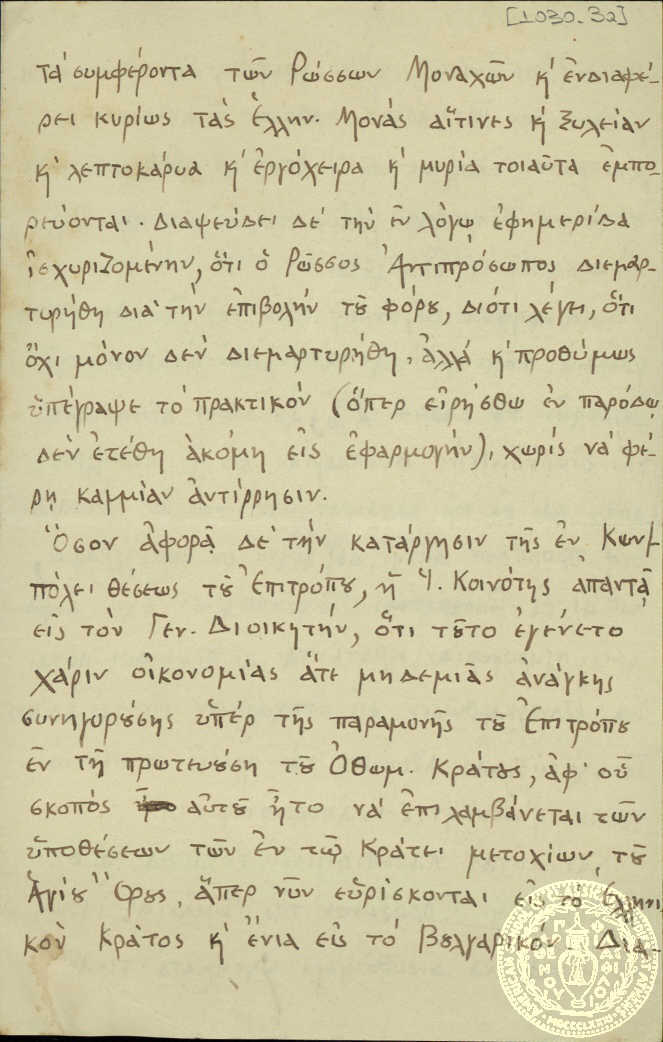 [1030-32]
τά συμφέροντα τῶν Ρώσσων Μοναχῶν κ' ἐνδιαφέ-
ρει κυρίως τάς Ἑλλην. Μονάς αἵτινες κ' ξυλείαν
κ' λεπτοκάρυα κ' ἐργόχειρα κ' μυρία τοιαῦτα ἐμπο-
ρεύονται. Διαψεύδει δέ τήν ἐν λόγῳ ἐφημερίδα
ἰσχυριζομένην, ὅτι ὁ Ρῶσσος Ἀντιπρόσωπος διεμαρ-
τυρήθη διά τήν ἐπιβολήν τȣ͂ φόρȣ, διότι λέγει, ὅτι
ὄχι μόνον δέν διεμαρτυρήθη, ἀλλά κ' προθύμως
ὑπέγραψε τό πρακτικόν (ὅπερ εἰρήσθω ἐν παρόδῳ
δέν ἐτέθη ἀκόμη εἰς ἐφαρμογήν), χωρίς νά φέ-
ρῃ καμμίαν ἀντίρρησιν.
Ὅσον ἀφορᾷ δέ τήν κατάργησιν τῆς ἐν Κων/
πόλει θέσεως τȣ͂ Ἐπιτρόπȣ, ἡ Ἱ. Κοινότης ἀπαντᾷ
εἰς τόν Γεν. Διοικητήν, ὅτι τȣ͂το ἐγένετο
χάριν οἰκονομίας ἅτε μηδεμιᾶς ἀνάγκης
συνηγορȣ́σης ὑπέρ τῆς παραμονῆς τȣ͂ Ἐπιτρόπȣ
ἐν τῇ πρωτευȣ́σῃ τȣ͂ Ὀθωμ. Κράτȣς, ἀφ' οὗ
σκοπός αὐτȣ͂ ἦτο νά ἐπιλαμβάνεται τῶν
ὑποθέσεων τῶν ἐν τῷ Κράτει μετοχίων τȣ͂
Ἁγίȣ Ὄρȣς, ἅπερ νῦν εὑρίσκονται εἰς τό Ἑλληνι
κόν Κράτος κ' ἔνια εἰς τό Βȣλγαρικόν. Δια-